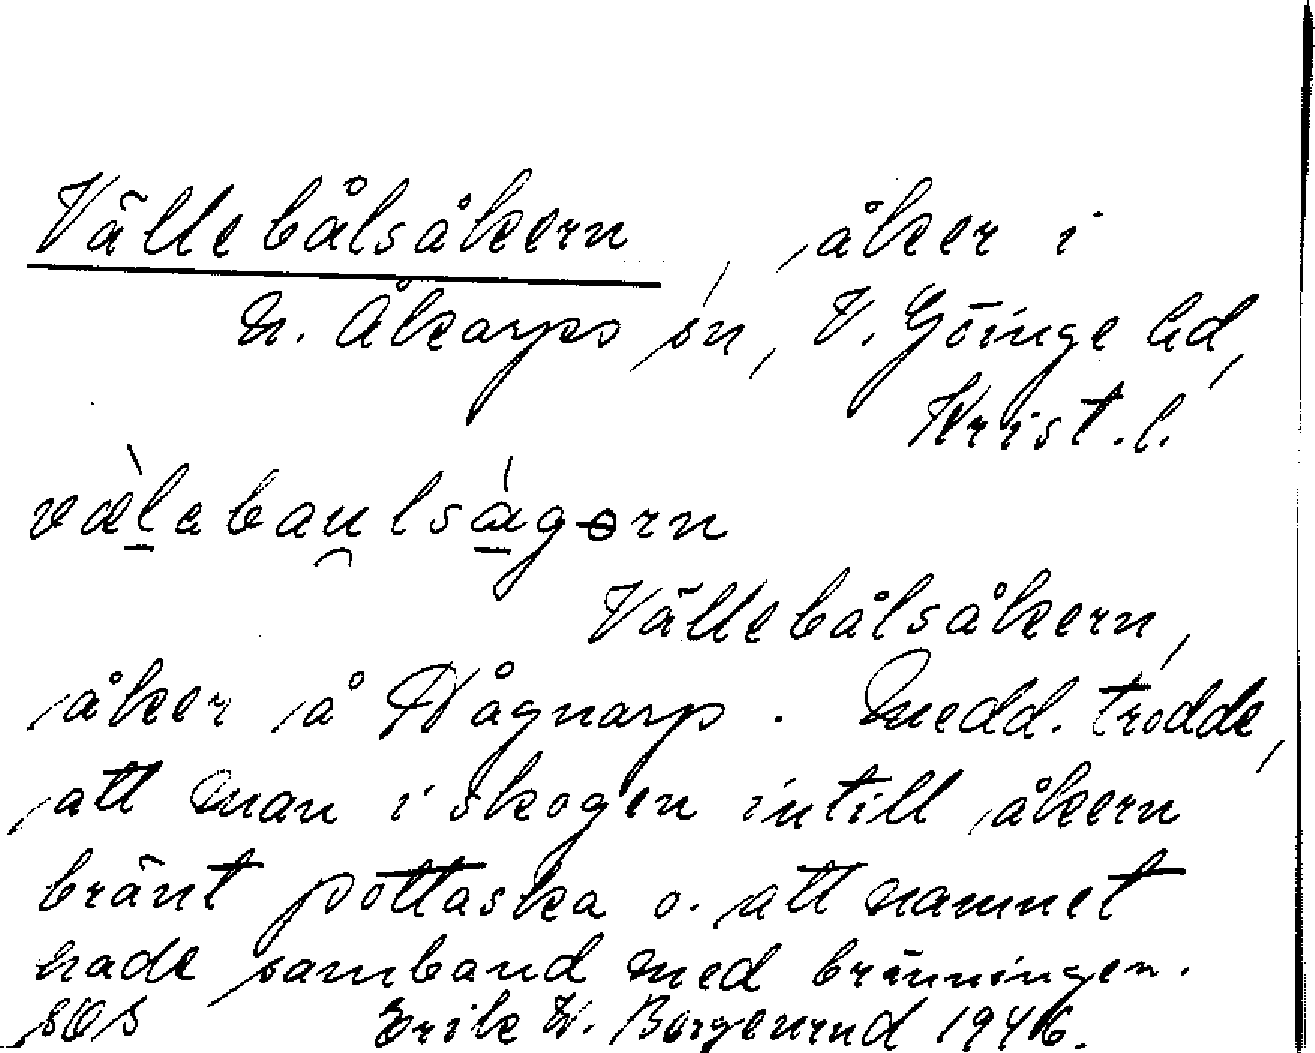 Vällebålsåkern, åker i
N. Åkarps sn, V. Göinge hd,
Krist. l.
Vällebålsåkern,
åker å Hågnarp. Medd. trodde,
att man i skogen intill åkern
bränt pottaska o. att namnet
hade samband med bränningen.
Erik W. Borgenrud 1946.